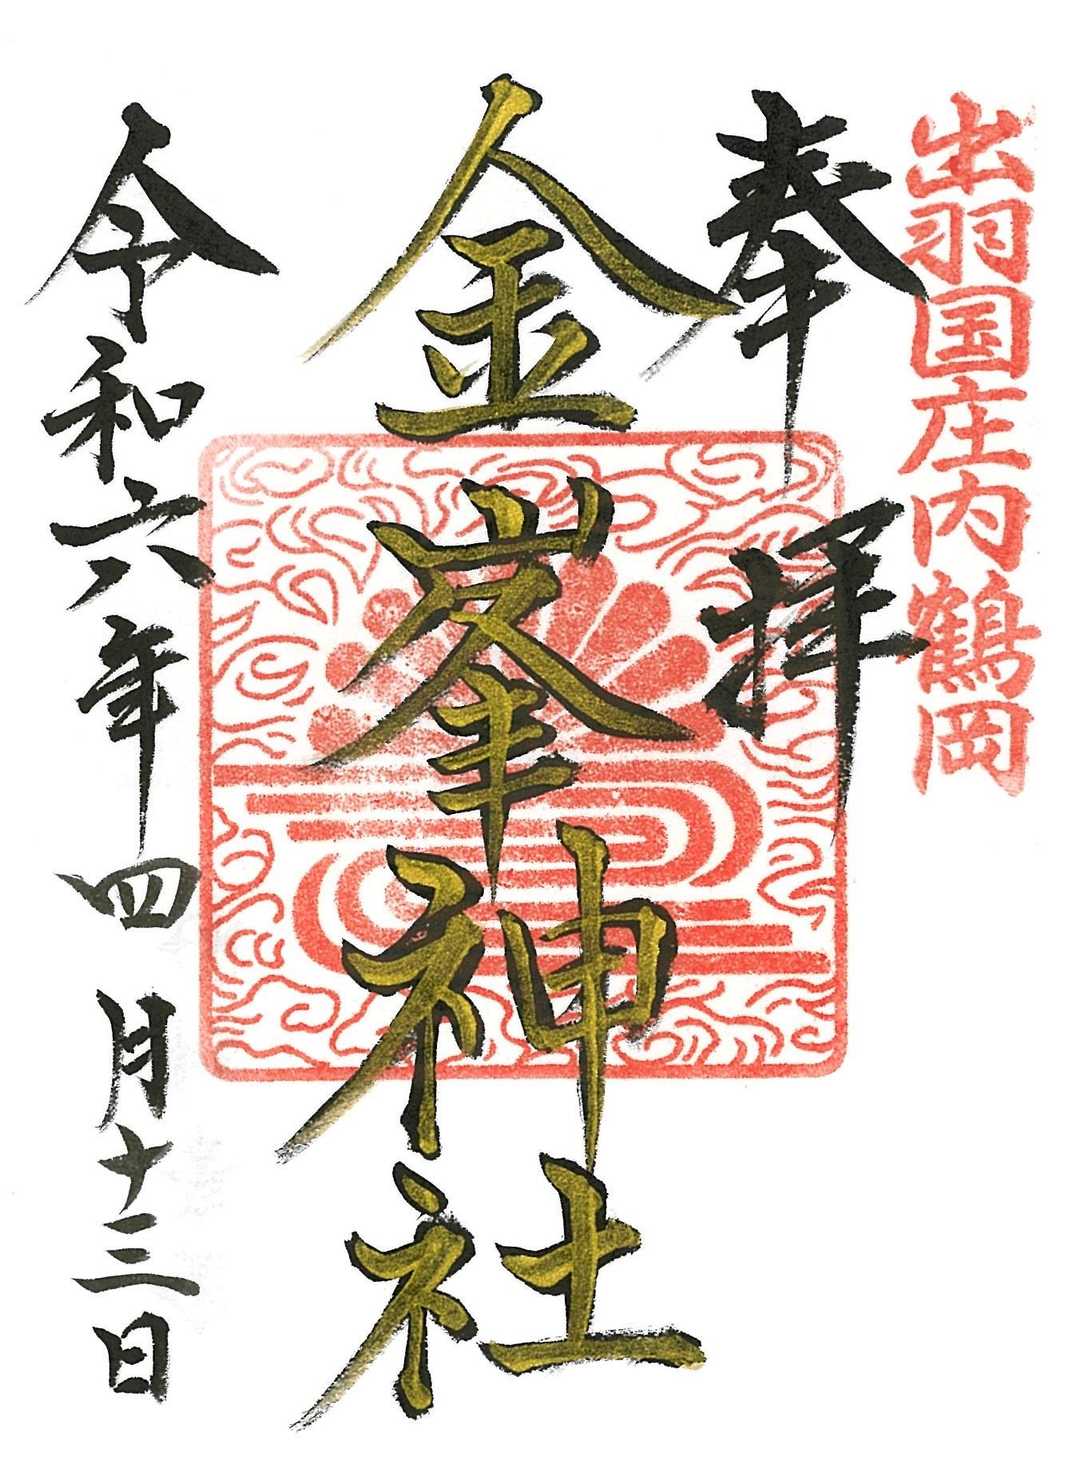 出羽国庄内鶴岡
奉拝
金峯神社
令和六年四月十三日